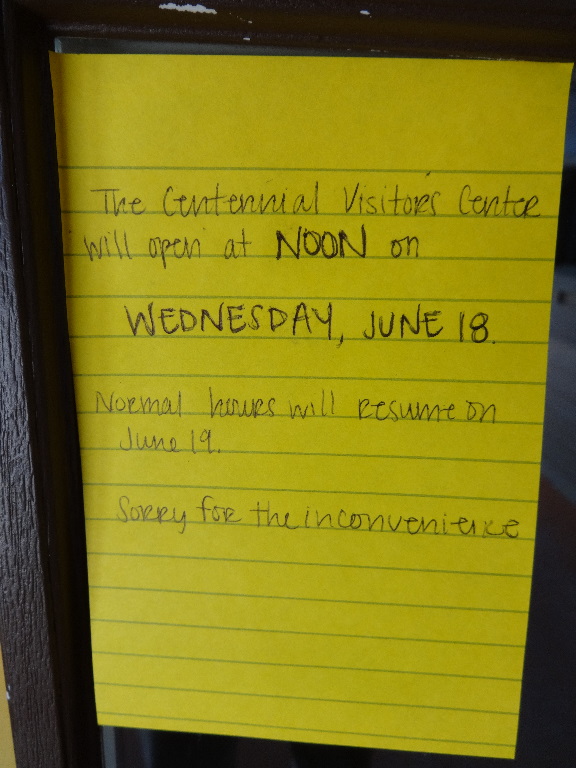 The Centennial Visitors Center
will open at NOON on
WEDNESDAY, JUNE 18.
Normal hours will resume on
June 19.
Sorry for the inconvenience